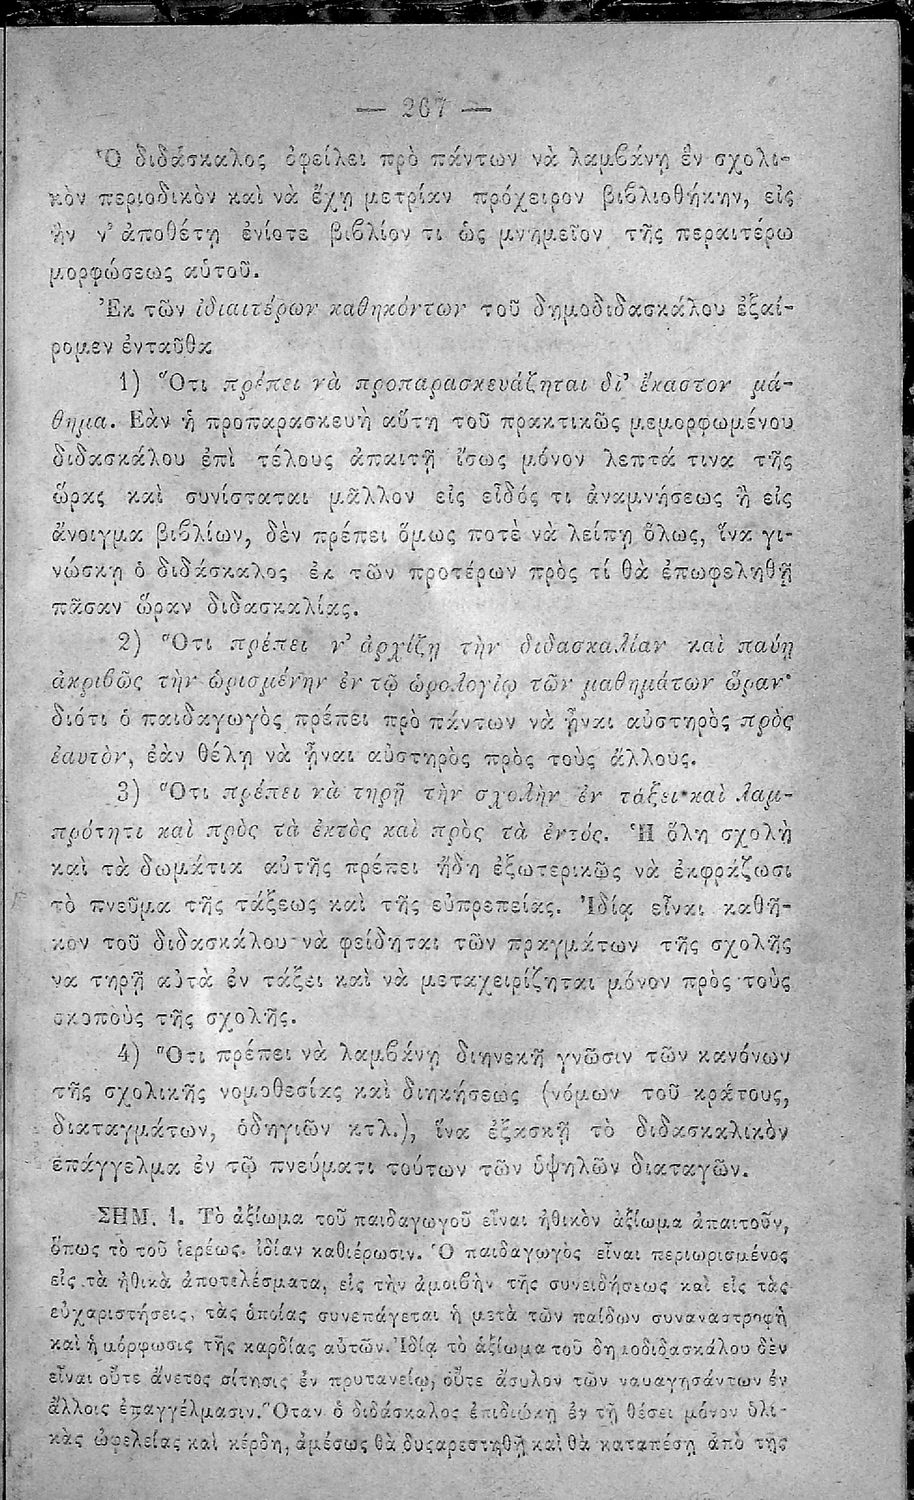 — 267 —
Ὁ διδάσκαλος ὀφείλει πρὸ πάντων νὰ λαμβάνῃ ἓν σχολι-
κὸν περιοδικὸν καὶ νὰ ἔχῃ μετρίαν πρόχειρον βιβλιοθήκην, εἰς
ἣν ν' ἀποθέτῃ ἐνίοτε βιβλίον τι ὡς μνημεῖον τῆς περαιτέρω
μορφώσεως αὐτοῦ.
Ἐκ τῶν ἰδιαιτέρων καθηκόντων τοῦ δημοδιδασκάλου ἐξαί-
ρομεν ἐνταῦθα
1) Ὅτι πρέπει νὰ προπαρασκευάζηται δι' ἕκαστον μά-
θημα. Ἐὰν ἡ προπαρασκευὴ αὕτη τοῦ πρακτικῶς μεμορφωμένου
διδασκάλου ἐπὶ τέλους ἀπαιτῇ ἴσως μόνον λεπτά τινα τῆς
ὥρας καὶ συνίσταται μᾶλλον εἰς εἶδός τι ἀναμνήσεως ἢ εἰς
ἄνοιγμα βιβλίων, δὲν πρέπει ὅμως ποτὲ νὰ λείπῃ ὅλως, ἵνα γι-
νώσκῃ ὁ διδάσκαλος ἐκ τῶν προτέρων πρὸς τί θὰ ἐπωφεληθῇ
πᾶσαν ὥραν διδασκαλίας.
2) Ὅτι πρέπει ν' ἀρχίζῃ τὴν διδασκαλίαν καὶ παύῃ
ἀκριβῶς τὴν ὡρισμένην ἐν τῷ ὡρολογίῳ τῶν μαθημάτων ὥραν·
διότι ὁ παιδαγωγὸς πρέπει πρὸ πάντων νὰ ἦναι αὐστηρὸς πρὸς
ἑαυτὸν, ἐὰν θέλῃ νὰ ἦναι αὐστηρὸς πρὸς τοὺς ἄλλους.
3) Ὅτι πρέπει νὰ τηρῇ τὴν σχολὴν ἐν τάξει καὶ λαμ-
πρότητι καὶ πρὸς τὰ ἐκτὸς καὶ πρὸς τὰ ἐντός. Ἡ ὅλη σχολὴ
καὶ τὰ δωμάτια αὐτῆς πρέπει ἤδη ἐξωτερικῶς νὰ ἐκφράζωσι
τὸ πνεῦμα τῆς τάξεως καὶ τῆς εὐπρεπείας. Ἰδίᾳ εἶναι καθῆ-
κον τοῦ διδασκάλου νὰ φείδηται τῶν πραγμάτων τῆς σχολῆς
να τηρῇ αὐτὰ ἐν τάξει καὶ νὰ μεταχειρίζηται μόνον πρὸς τοὺς
σκοποὺς τῆς σχολῆς.
4) Ὅτι πρέπει νὰ λαμβάνῃ διηνεκῆ γνῶσιν τῶν κανόνων
τῆς σχολικῆς νομοθεσίας καὶ διηκήσεως (νόμων τοῦ κράτους,
διαταγμάτων, ὁδηγιῶν κτλ.), ἵνα ἐξασκῇ τὸ διδασκαλικὸν
ἐπάγγελμα ἐν τῷ πνεύματι τούτων τῶν ὑψηλῶν διαταγῶν.
ΣΗΜ. 1. Τὸ ἀξίωμα τοῦ παιδαγωγοῦ εἶναι ἠθικὸν ἀξίωμα ἀπαιτοῦν,
ὅπως τὸ τοῦ ἱερέως, ἰδίαν καθιέρωσιν. Ὁ παιδαγωγὸς εἶναι περιωρισμένος
εἰς τὰ ἠθικὰ ἀποτελέσματα, εἰς τὴν ἀμοιβὴν τῆς συνειδήσεως καὶ εἰς τὰς
εὐχαριστήσεις, τὰς ὁποίας συνεπάγεται ἡ μετὰ τῶν παίδων συναναστροφὴ
καὶ ἡ μόρφωσις τῆς καρδίας αὐτῶν. Ἰδίᾳ τὸ ἀξίωμα τοῦ δημοδιδασκάλου δὲν
εἶναι οὔτε ἄνετος σίτησις ἐν πρυτανείῳ, οὔτε ἄσυλον τῶν ναυαγησάντων ἐν
ἄλλοις ἐπαγγέλμασιν. Ὅταν ὁ διδάσκαλος ἐπιδιώκῃ ἐν τῇ θέσει μόνον ὑλι-
κὰς ὠφελείας καὶ κέρδη, ἀμέσως θὰ δυςαρεστηθῇ καὶ θὰ καταπέσῃ ἀπὸ τῆς